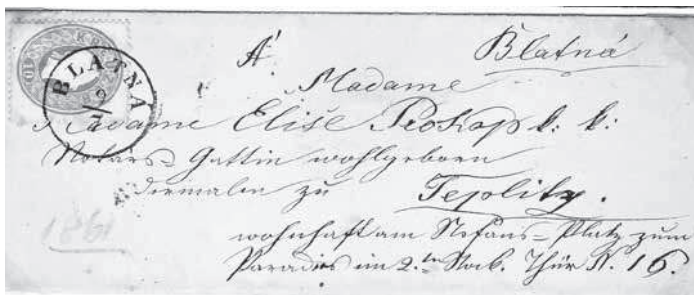 BLATNÁ
9/7
10
A'
Blatná
Madame
Madame Elise Prokop k: k:
Notars=Gattin wohlgeborn
dermalen zu Teplitz.
wohnhaft am Stefans=Platz zum
Paradies im 2.ten Stock. Thür N. 16.
1861